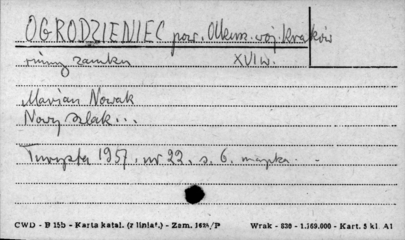 OGRODZIENIEC pow. Olkusz. woj. kraków
ruiny zamku XVI w.
Marian Nowak
Nowy szlak...
Turysta 1957. nr 22. s. 6. mapka.
CWD - B 15b - Karta katal. (z liniat.) - Zam. 1624/P Wrak - 830 - 1.169.000 - Kart. 5 kl. A1